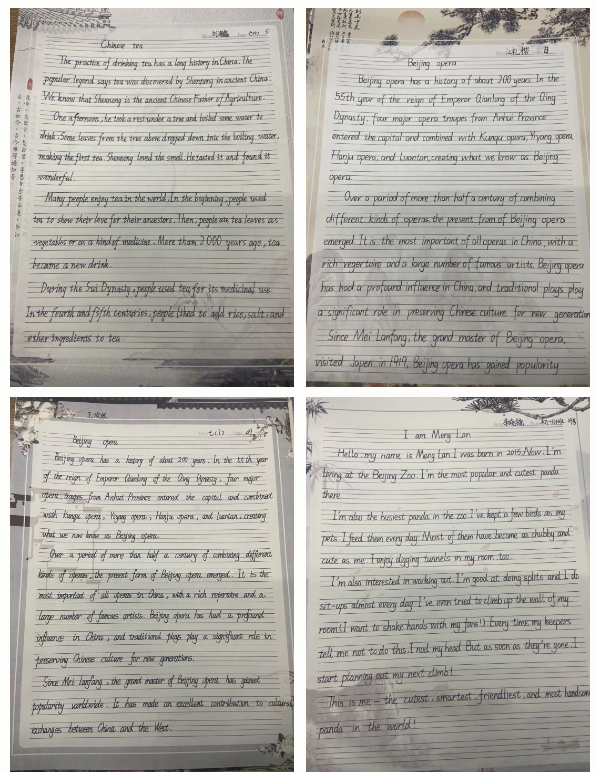 Chinese tea
The practice of drinking tea has a long history in China. The
popular legend says tea was discovered by Shennong in ancient China.
We know that Shennong is the ancient Chinese Father of Agriculture.
One afternoon, he took a rest under a tree and boiled some water to
drink. Some leaves from the tree above dropped down into the boiling water,
making the first tea. Shennong loved the smell. He tasted it and found it
wonderful.
Many people enjoy tea in the world. In the beginning, people used
tea to show their love for their ancestors. Then, people ate tea leaves as
vegetables or as a kind of medicine. More than 2000 years ago, tea
became a new drink.
During the Sui Dynasty, people used tea for its medicinal use.
In the fourth and fifth centuries, people liked to add rice, salt, and
other ingredients to tea.
Beijing opera
Beijing opera has a history of about 200 years. In the
55th year of the reign of Emperor Qianlong of the Qing
Dynasty, four major opera troupes from Anhui Province
entered the capital and combined with Kunqu opera, Yiyang opera,
Hanju opera, and Luantan, creating what we know as Beijing
opera.
Over a period of more than half a century of combining
different kinds of operas, the present from of Beijing opera
emerged. It is the most important of all operas in China, with a
rich repertoire and a large number of famous artists. Beijing opera
has had a profound influence in China, and traditional plays play
a significant role in preserving Chinese culture for new generation
Since Mei Lanfang, the grand master of Beijing opera,
visited Japen in 1919, Beijing opera has gained popularity
Beijing opera
Beijing opera has a history of about 200 years. In the 55th year
of the reign of Emperor Qianlong of the Qing Dynasty, four major
opera troupes from Anhui Province entered the capital and combined
with Kunqu opera, Yiyang opera, Hanju opera, and Luantan, creating
what we now know as Beijing opera.
Over a period of more than half a century of combining different
kinds of operas, the present form of Beijing opera emerged. It is the
most important of all operas in China, with a rich repertoire and a
large number of famous artists. Beijing opera has had a profound
influence in China, and traditional plays play a significant role in
preserving Chinese culture for new generations.
Since Mei Lanfang, the grand master of Beijing opera has gained
popularity worldwide. It has made an excellent contribution to cultural
exchanges between China and the West.
I am Meng Lan
Hello, my name is Meng Lan. I was born in 2015. Now I'm
living at the Beijing Zoo. I'm the most popular and cutest panda
there.
I'm also the busiest panda in the zoo. I've kept a few birds as my
pets. I feed them every day. Most of them have become as chubby and
cute as me. I enjoy digging tunnels in my room, too.
I'm also interested in working out. I'm good at doing splits and I do
sit-ups almost every day. I've even tried to climb up the wall of my
room! (I want to shake hands with my fans!) Every time, my keepers
tell me not to do this. I nod my head. But as soon as they're gone, I
start planning out my next climb!
This is me — the cutest, smartest, friendliest, and most handsom
panda in the world!